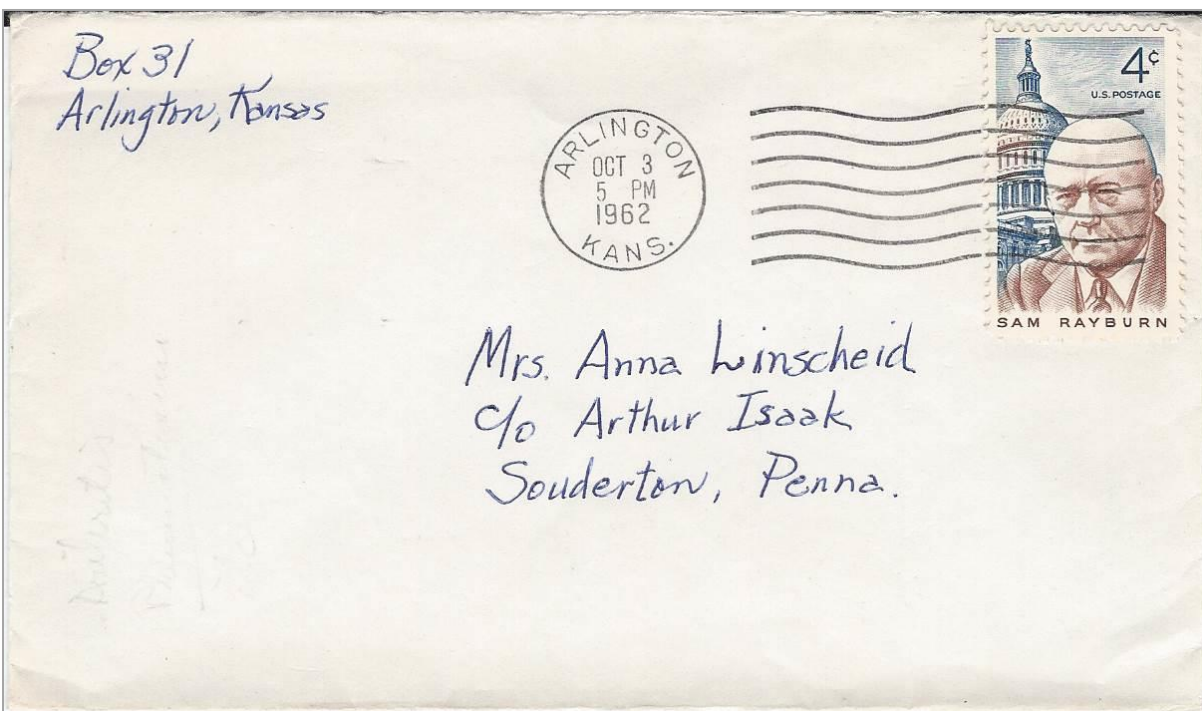 Box 31
Arlington, Kansas
ARLINGTON
OCT 3
5 PM
1962
KANS.
4¢
U.S. POSTAGE
SAM RAYBURN
Mrs. Anna Linscheid
c/o Arthur Isaak
Souderton, Penna.